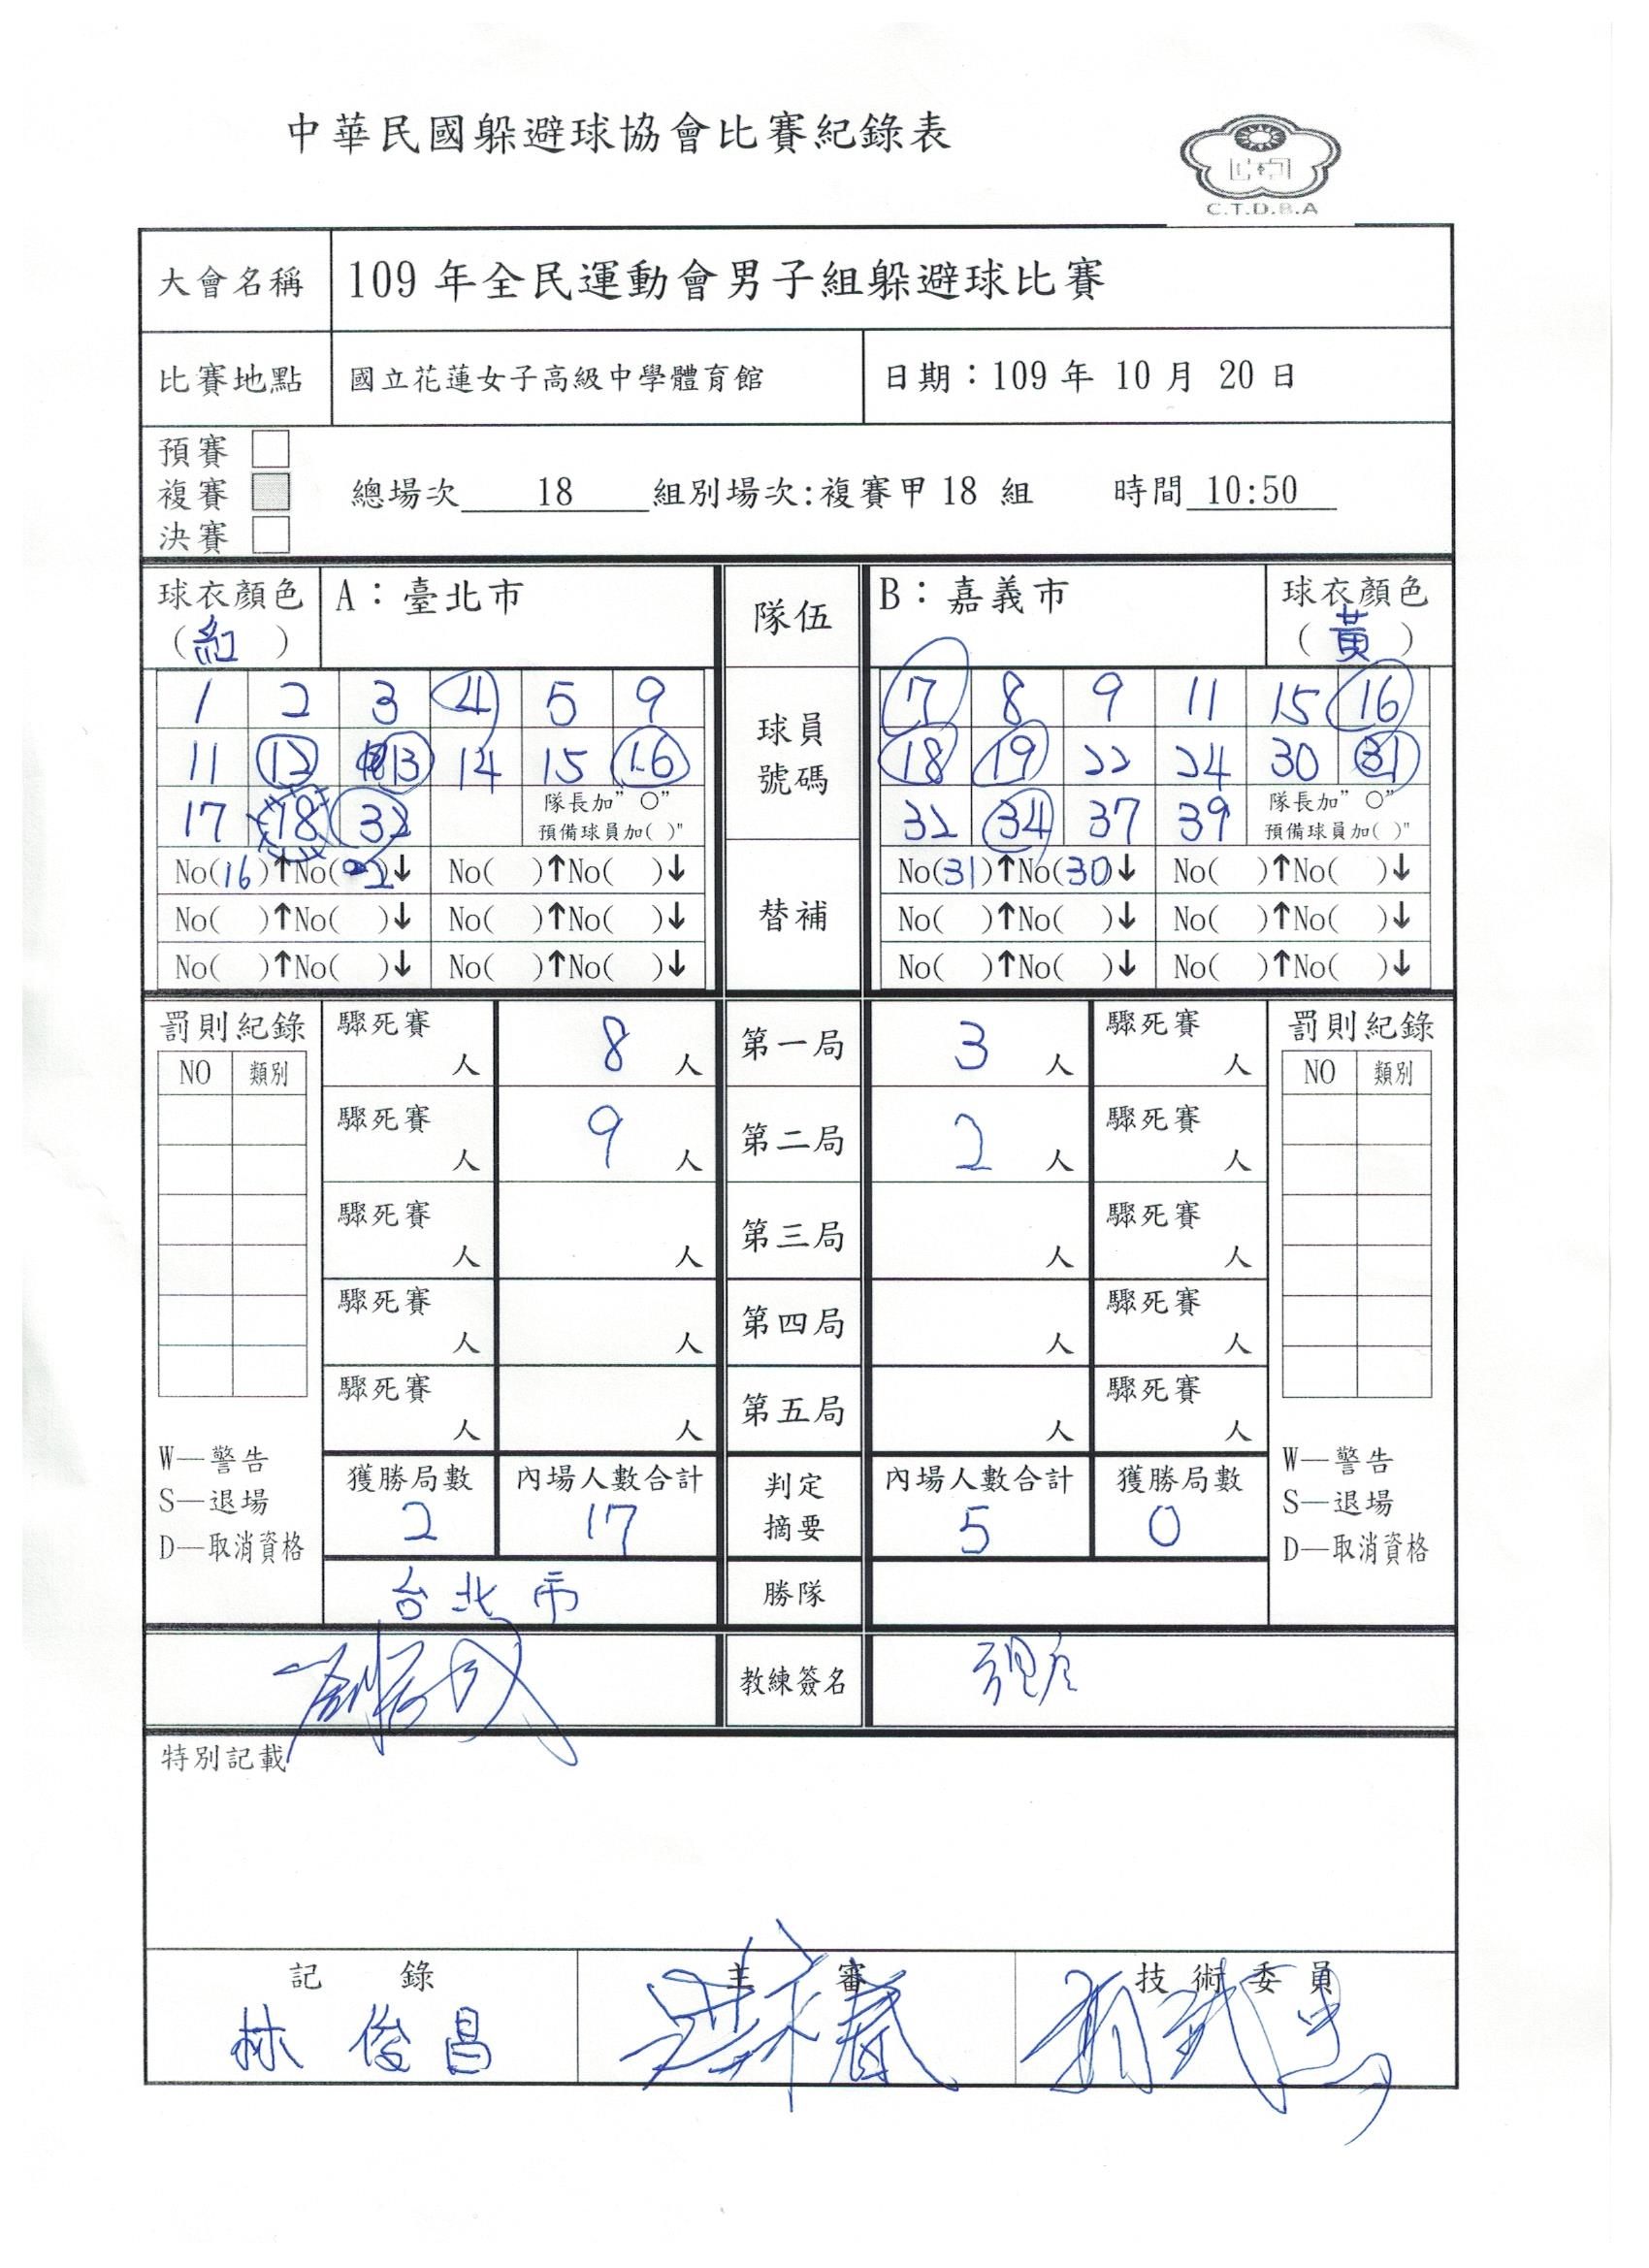 中華民國躲避球協會比賽紀錄表
C.T.D.B.A
大會名稱 109 年全民運動會男子組躲避球比賽
比賽地點 國立花蓮女子高級中學體育館 日期：109 年 10 月 20 日
預賽
複賽 總場次 18 組別場次:複賽甲 18 組 時間 10:50
決賽
球衣顏色 A：臺北市 隊伍 B：嘉義市 球衣顏色
（紅） （黃）
1 2 3 4 5 9 球員 7 8 9 11 15 16
11 12 13 14 15 16 號碼 18 19 22 24 30 31
17 18 32 隊長加" O" 32 34 37 39 隊長加" O"
預備球員加( )" 預備球員加( )"
No(16)↑No(2)↓ No( )↑No( )↓ No(31)↑No(30)↓ No( )↑No( )↓
No( )↑No( )↓ No( )↑No( )↓ 替補 No( )↑No( )↓ No( )↑No( )↓
No( )↑No( )↓ No( )↑No( )↓ No( )↑No( )↓ No( )↑No( )↓
罰則紀錄 驟死賽 人 8 人 第一局 3 人 驟死賽 人 罰則紀錄
NO 類別 NO 類別
驟死賽 人 9 人 第二局 2 人 驟死賽 人
驟死賽 人 人 第三局 人 驟死賽 人
驟死賽 人 人 第四局 人 驟死賽 人
驟死賽 人 人 第五局 人 驟死賽 人
W—警告 獲勝局數 內場人數合計 判定 內場人數合計 獲勝局數 W—警告
S—退場 2 17 摘要 5 0 S—退場
D—取消資格 D—取消資格
台北市 勝隊
教練簽名
特別記載
記 錄 主 審 技 術 委 員
林 俊 昌